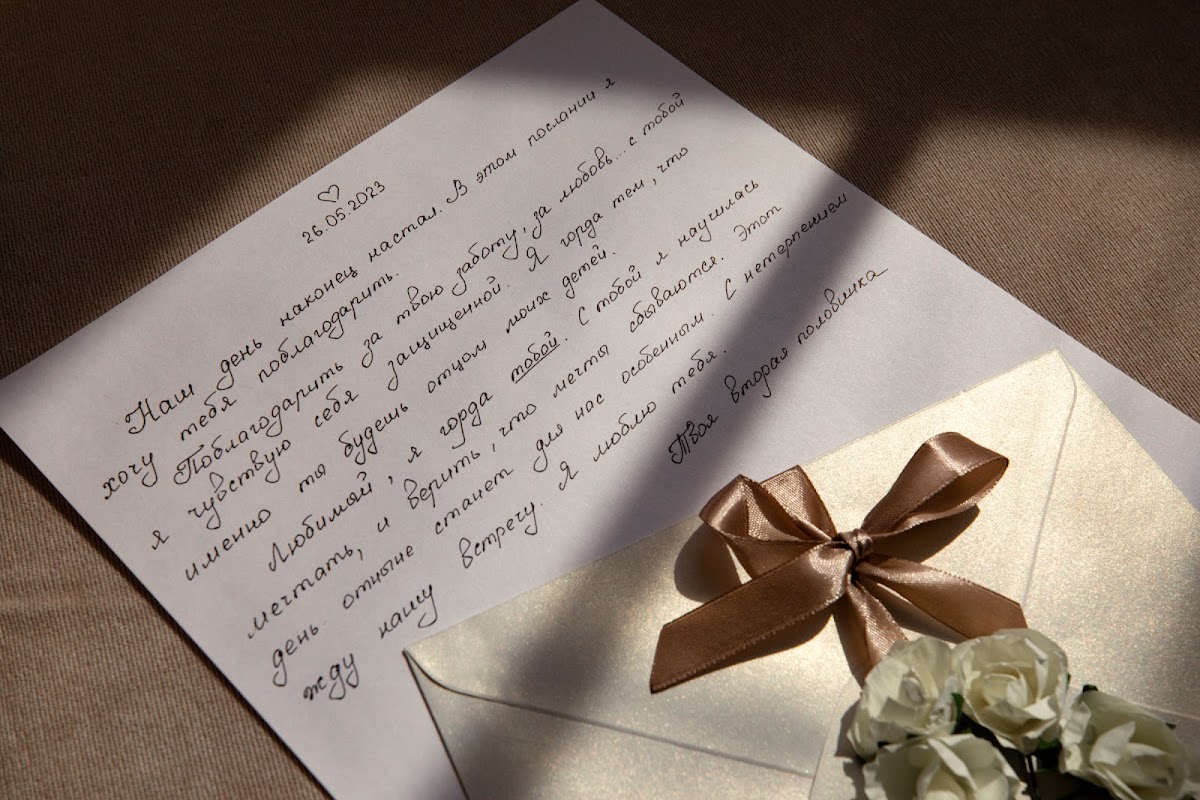 ♡
26.05.2023
Наш день наконец настал. В этом послании я
хочу тебя поблагодарить.
Поблагодарить за твою заботу, за любовь... с тобой
я чувствую себя защищенной. Я горда тем, что
именно ты будешь отцом моих детей.
Любимый, я горда тобой. С тобой я научилась
мечтать, и верить, что мечты сбываются. Этот
день отныне станет для нас особенным. С нетерпением
жду нашу встречу. Я люблю тебя.
Твоя вторая половинка